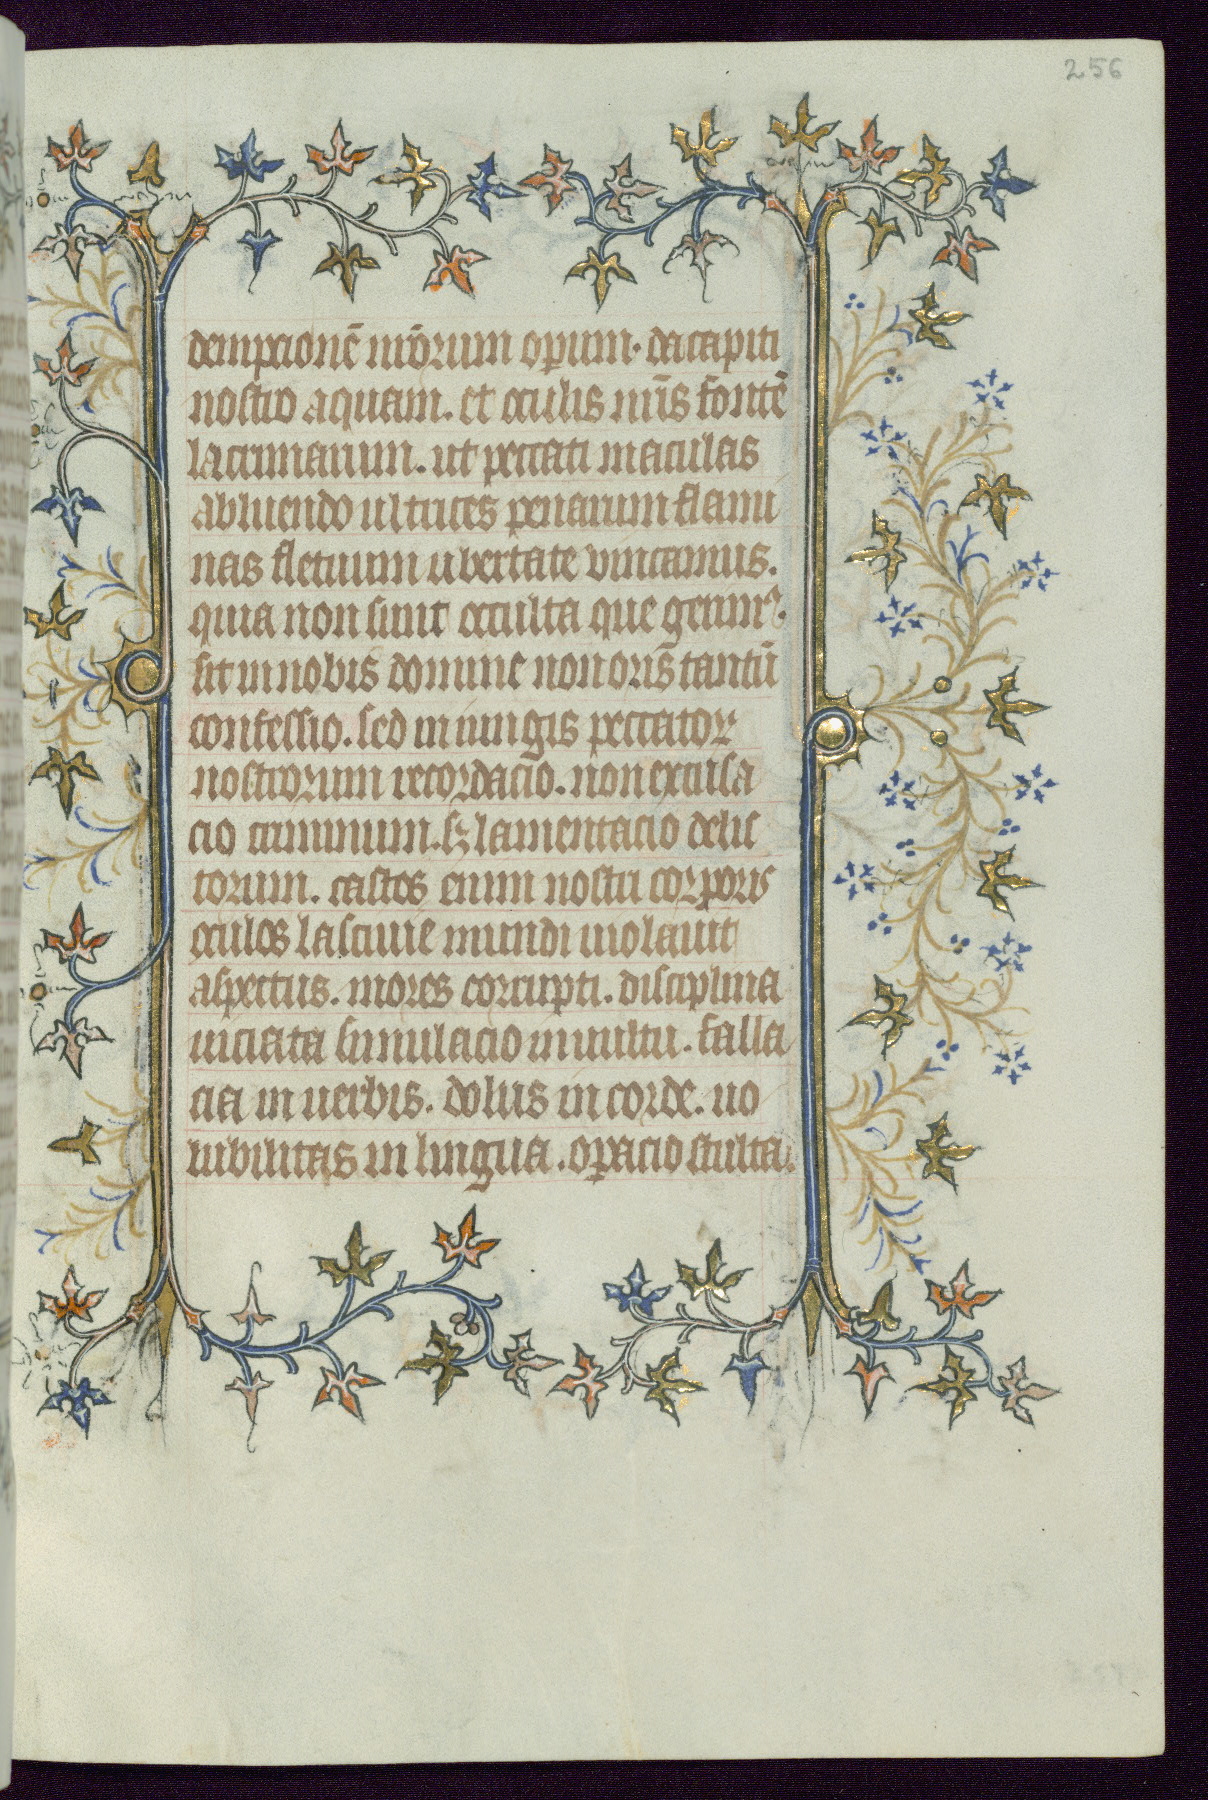 256
dempcionē mōrum opium. da capiti
nostro aquam. et oculis nr̄is fontē
lacrimarum. ut peccati maculas
abluendo ultrices penarum flam
nas fletuum ubertate vincamus.
quia non sunt occulta que gerim.
sit in nobis domine non oris tantū
confessio. sed in iungis peccator
nostrorum recordacio. non excusa
cio criminum. sz lamentacio delic
torum. castos enim nostri corporis
oculos lasciuie mundi uiolauit
aspectus. mores corrupti. disciplina
uiciata simulacio in uultu. falla
cia in uerbis. dolus in corde. uo
lubilitas in lingua. opacio stulta.